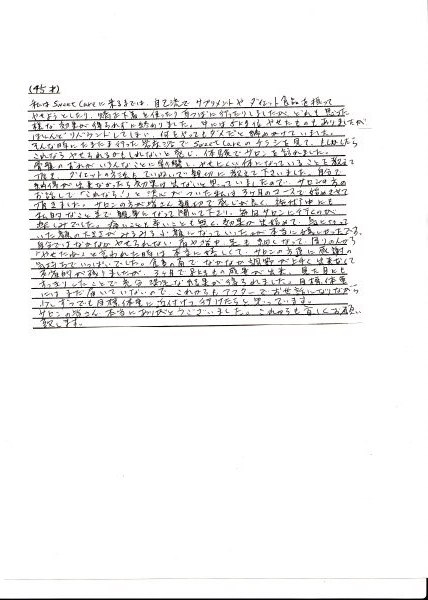 (45才)
私はSweet Careに来るまでは、自己流でサプリメントやダイエット食品を摂って
やせようとしたり、
様な効果が得られずに終わりました。中には5kg位やせたものもありましたが
ほとんどリバウンドしてしまい、何をやってもダメだと諦めかけていました。
そんな時にたまたま行った美容院でSweet Careのチラシを見て、もしかしたら
これならやせられるかもしれないと感じ、体験でサロンを訪れました。
骨盤のずれがいろんなことに影響し、やせにくい体になっていることを教えて
頂き、ダイエットの方法もていねいで親切に教えて下さいました。自分で
納得が出来なかったら効果は出ないと思っていましたので、サロンの方の
お話しで「これなら!」と決心がついた私は3ヶ月のコースで始めさせて
頂きました。サロンの方が皆さん親切で感じが良く、施術中にも
私的なことまで親身になって聞いて下さり、毎回サロンに行くのが
楽しみでした。痛いことも辛いことも無く、効果が出始めて、気になって
いた顔のたるみがみるみる小顔になっていったのが本当に嬉しかったです。
自分ではなかなかやせられない肩や背中、足も細くなって、周りの人から
「やせたね」と言われた時は本当に嬉しくて、サロンの方達に感謝の
気持ちでいっぱいでした。食事の面でなかなか調整が上手く出来なくて
3ヶ月で
すっきりしたことで充分満足な結果が得られました。目標体重
にはまだ届いていないので、これからもアフターでお世話になりながら
少しずつでも目標体重に近付けて行けたらと思っています。
サロンの皆さん、本当にありがとうございました。これからも宜しくお願い
致します。